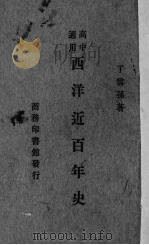 高中
適用
西洋近百年史
于雲孫著
商務印書館發行